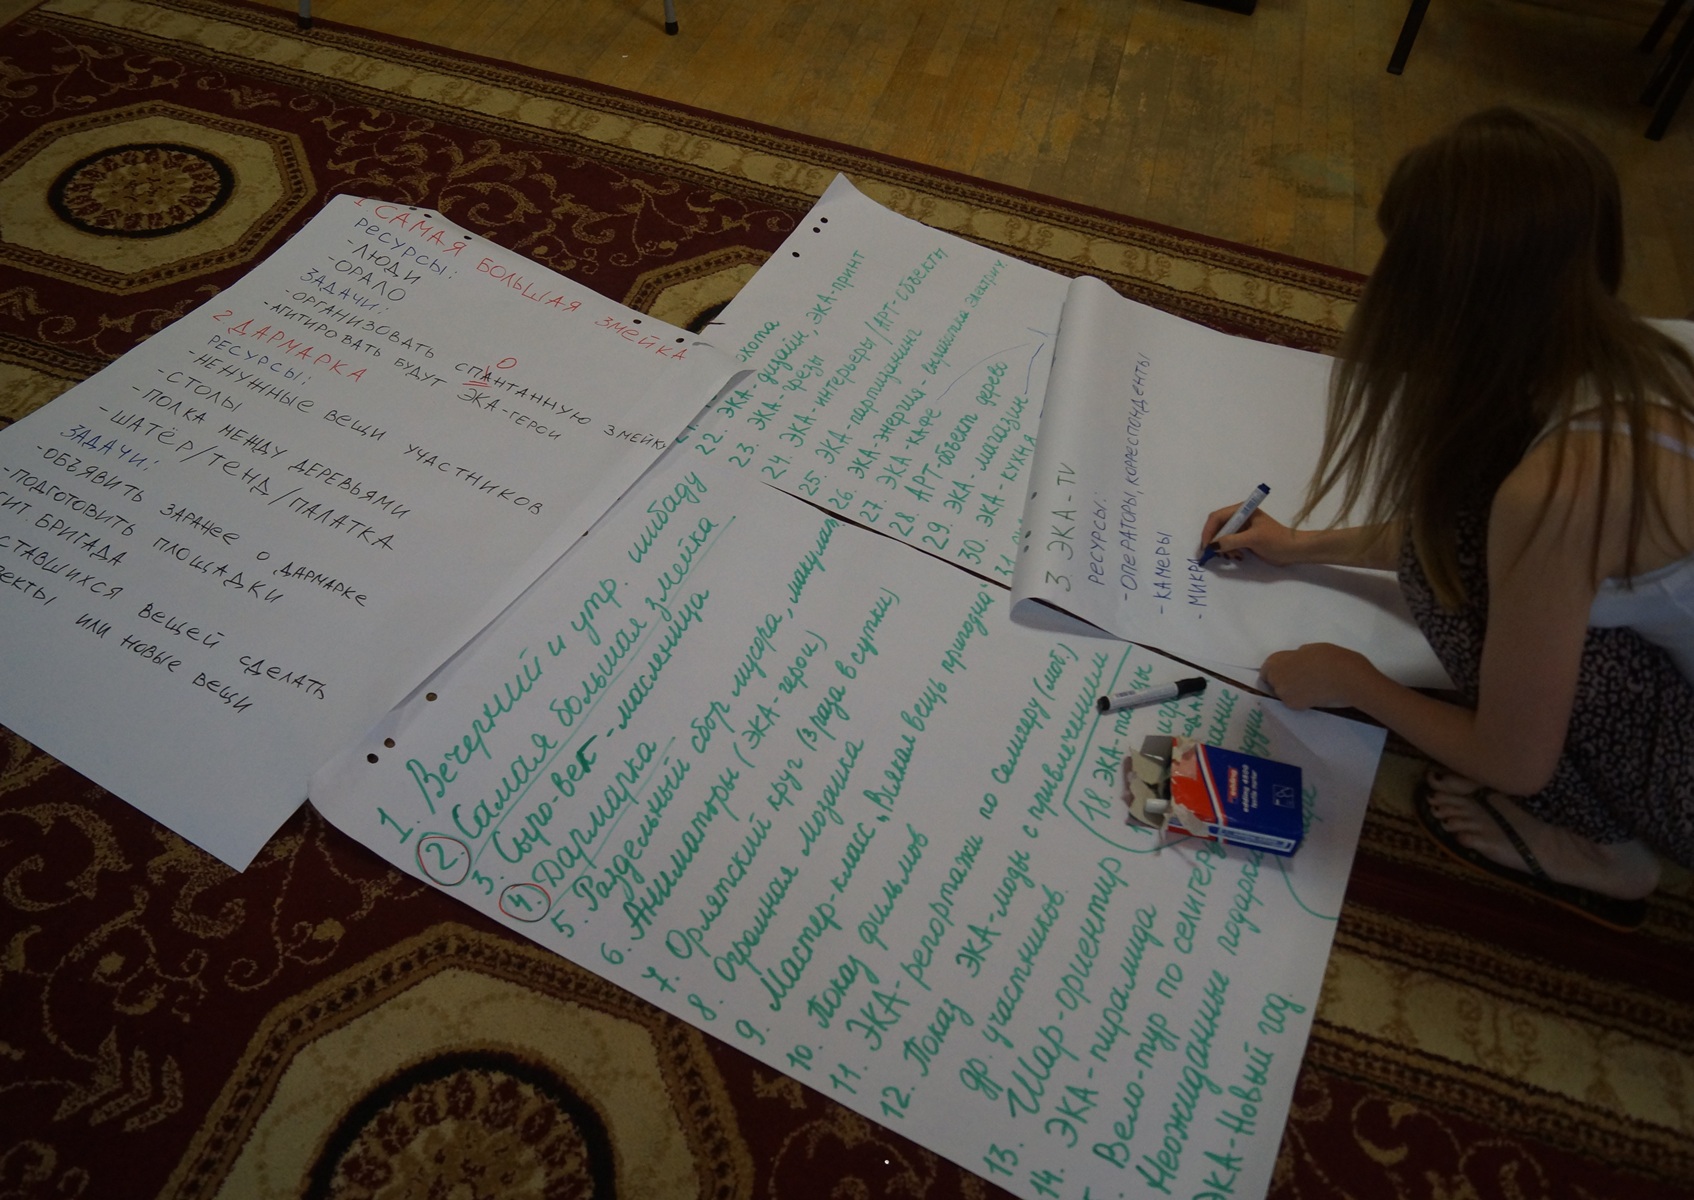 1 САМАЯ БОЛЬШАЯ ЗМЕЙКА
РЕСУРСЫ:
-ЛЮДИ
-ОРАЛО
ЗАДАЧИ:
-ОРГАНИЗОВАТЬ СПАНТАННУЮ ЗМЕЙКУ
О
-АГИТИРОВАТЬ БУДУТ ЭКА-ГЕРОИ
2 ДАРМАРКА
РЕСУРСЫ:
-НЕНУЖНЫЕ ВЕЩИ УЧАСТНИКОВ
-СТОЛЫ
-ПОЛКА МЕЖДУ ДЕРЕВЬЯМИ
-ШАТЁР/ТЕНД/ПАЛАТКА
ЗАДАЧИ:
-ОБЪЯВИТЬ ЗАРАНЕЕ О ДАРМАРКЕ
-ПОДГОТОВИТЬ ПЛОЩАДКИ
ГИТ. БРИГАДА
СТАВШИХСЯ ВЕЩЕЙ СДЕЛАТЬ
ЪЕКТЫ ИЛИ НОВЫЕ ВЕЩИ
1. Вечерний и утр. шибаду
2. Самая большая змейка
3. Сыро-век-масленица
4. Дармарка
5. Раздельный сбор мусора,
6. Аниматоры (ЭКА-герои)
7. Орлятский круг (3 раза в сутки)
8. Огромная мозаика
9. Мастер-класс „Всякая вещь пригодна"
10. Показ фильмов
11. ЭКА-репортажи по семинару (моб.)
12. Показ ЭКА-моды с привлечением
др. участников.
13. Шар-ориентир
14. ЭКА-пирамида
Вело-тур по селитер
Неожиданные подарки
ЭКА-Новый год
(18. ЭКА-
22. ЭКА-дизайн, ЭКА-принт
23. ЭКА-грезы
24. ЭКА-интерьеры/АРТ-объекты
25. ЭКА-партизанинг
26. ЭКА-энергия-
27. ЭКА-кафе
28. АРТ-объект дерево
29. ЭКА-магазин
30. ЭКА-кухня
31.
3. ЭКА-TV
РЕСУРСЫ:
-ОПЕРАТОРЫ, КОРРЕСПОНДЕНТЫ
-КАМЕРЫ
-МИКР
edding